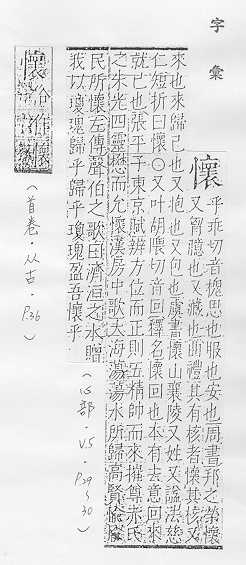 字彙
懷
乎乖切音槐思也服也安也周書邦之榮懷
又胷臆也又藏也曲禮其有核者懷其核又
來也來歸己也又抱也又包也虞書懷山襄陵又姓又諡法慈
仁短折曰懷〇又叶胡隈切音回釋名懷回也本有去意回來
就已也張平子東京賦辨方位而正則五精帥而來摧尊赤氏
之朱光四靈懋而允懷漢房中歌大海蕩蕩水所歸高賢愉愉
民所懷左傳聲伯之歌曰濟洹之水贈
我以瓊瑰歸乎歸乎瓊瑰盈吾懷乎
(心部.V5.P29~30)
懷
(首卷.从古.P36)